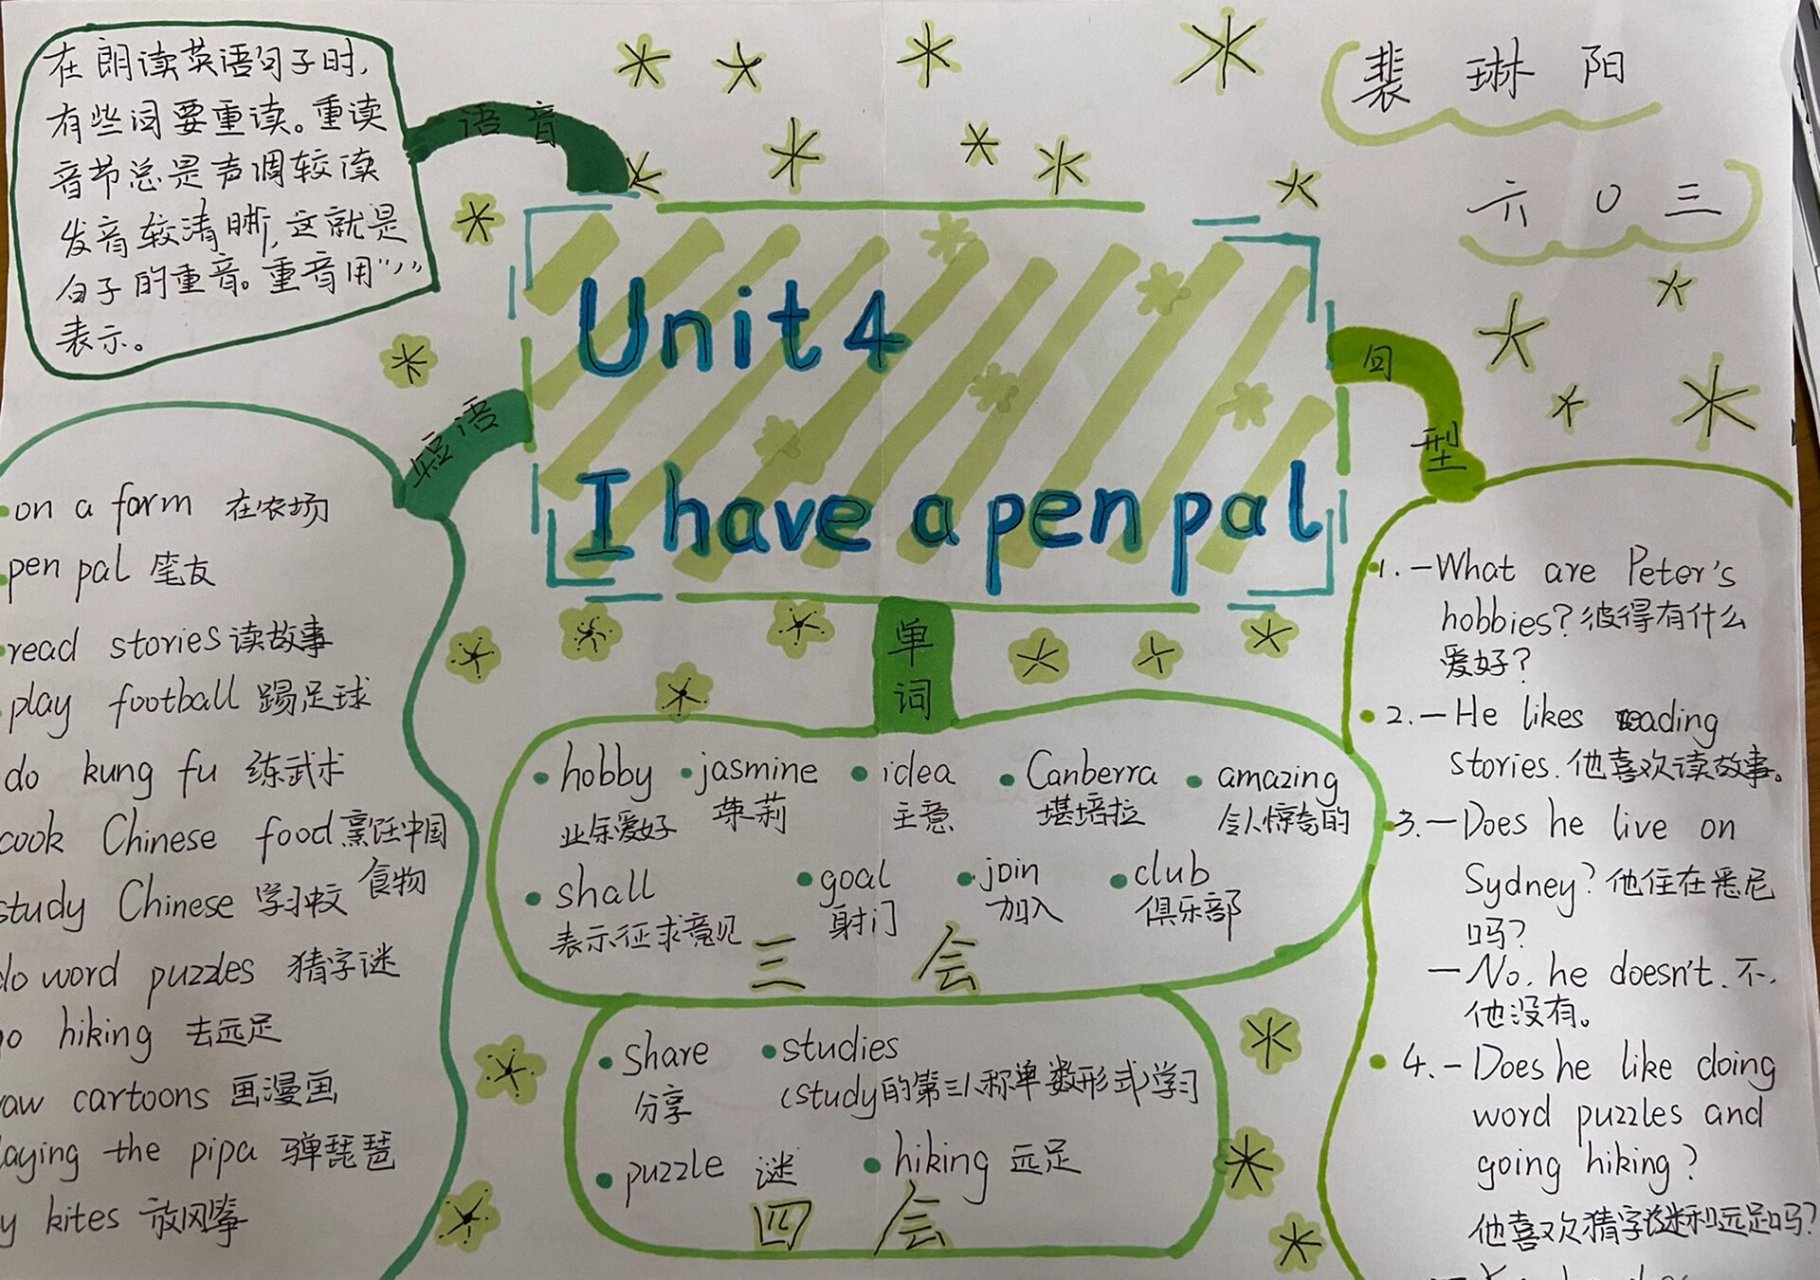 在朗读英语句子时,
有些词要重读。重读
音节总是声调较读
发音较清晰,这就是
句子的重音。重音用"ノ"
表示。
语音
裴琳阳
六0三
Unit 4
I have a pen pal
短语
on a farm 在农场
pen pal 笔友
read stories 读故事
play football 踢足球
do kung fu 练武术
cook Chinese food 烹饪中国
食物
study Chinese 学习中文
do word puzzles 猜字谜
go hiking 去远足
aw cartoons 画漫画
laying the pipa 弹琵琶
y kites 放风筝
单词
hobby jasmine idea Canberra amazing
业余爱好 茉莉 主意 堪培拉 令人惊奇的
shall goal join club
表示征求意见 射门 加入 俱乐部
三会
share studies
分享 (study的第三人称单数形式)学习
puzzle 谜 hiking 远足
四会
句型
1.—What are Peter's
hobbies? 彼得有什么
爱好?
2.—He likes reading
stories. 他喜欢读故事。
3.—Does he live on
Sydney? 他住在悉尼
吗?
—No, he doesn't. 不,
他没有。
4.—Does he like doing
word puzzles and
going hiking?
他喜欢猜字谜和远足吗?